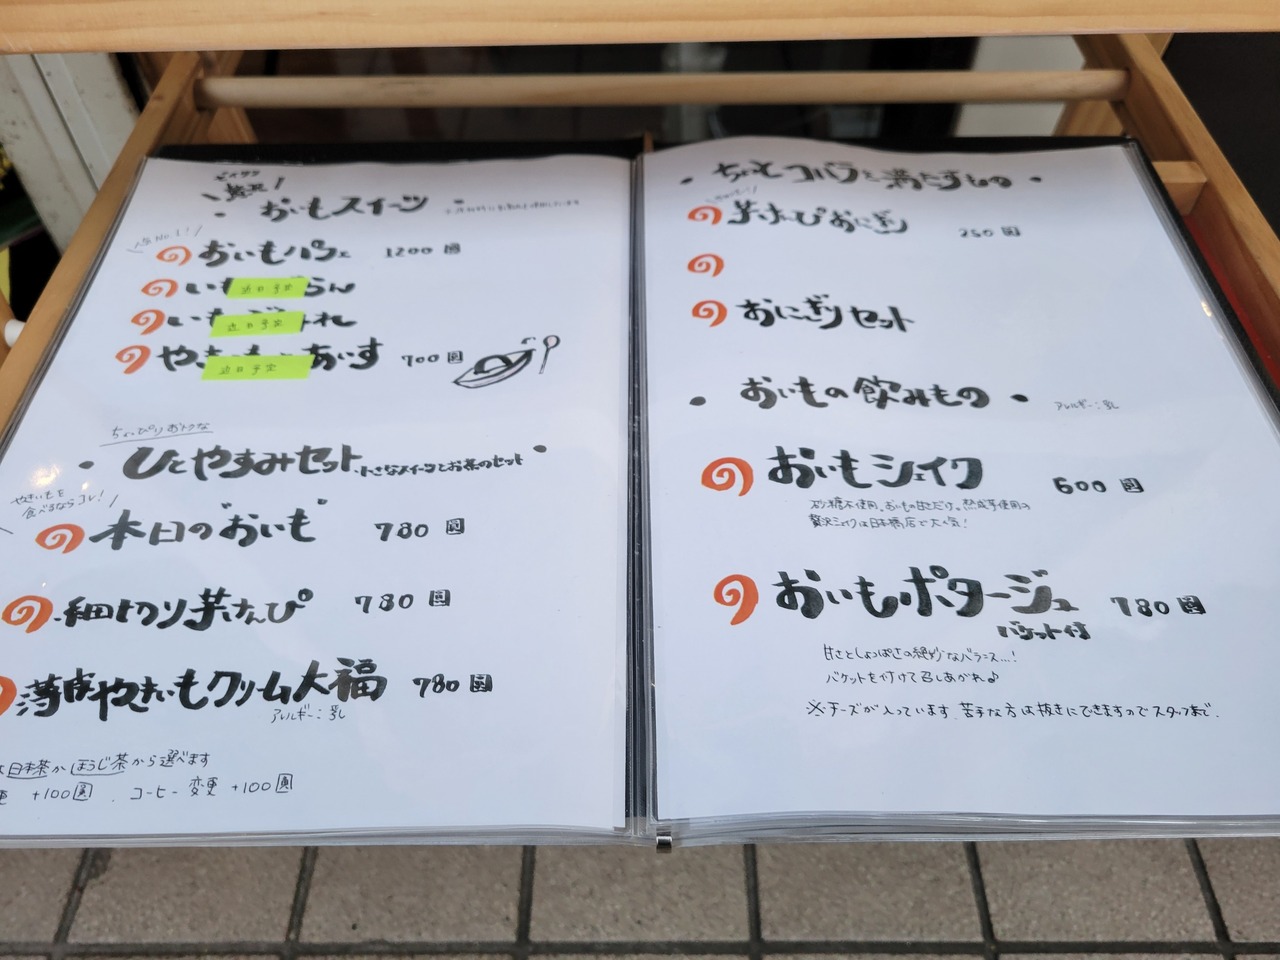 贅沢
おいもスイーツ
人気No.1!
おいもパフェ 1200圓
い 近日予定 らん
い 近日予定 れ
や 近日予定 あいす 700圓
ちょっぴりおトクな
ひとやすみセット 小さなスイーツとお茶のセット
やきいもを
食べるならコレ!
本日の"おいも" 780圓
細切り芋けんぴ 780圓
薄皮やきいもクリーム大福 780圓
アレルギー:乳
日本茶かほうじ茶から選べます
更 +100圓 コーヒー変更 +100圓
ちょっとコバラを満たすもの
芋けんぴおにぎり 250圓
おにぎりセット
おいもの飲みもの
アレルギー:乳
おいもシェイク 600圓
砂糖不使用。おいもの甘さだけ。熟成芋使用の
贅沢シェイクは日本橋店で大人気!
おいもポタージュ 780圓
バケット付
甘さとしょっぱさの絶妙なバランス…!
バケットを付けて召しあがれ♪
※チーズが入っています。苦手な方は抜きにできますのでスタッフまで.